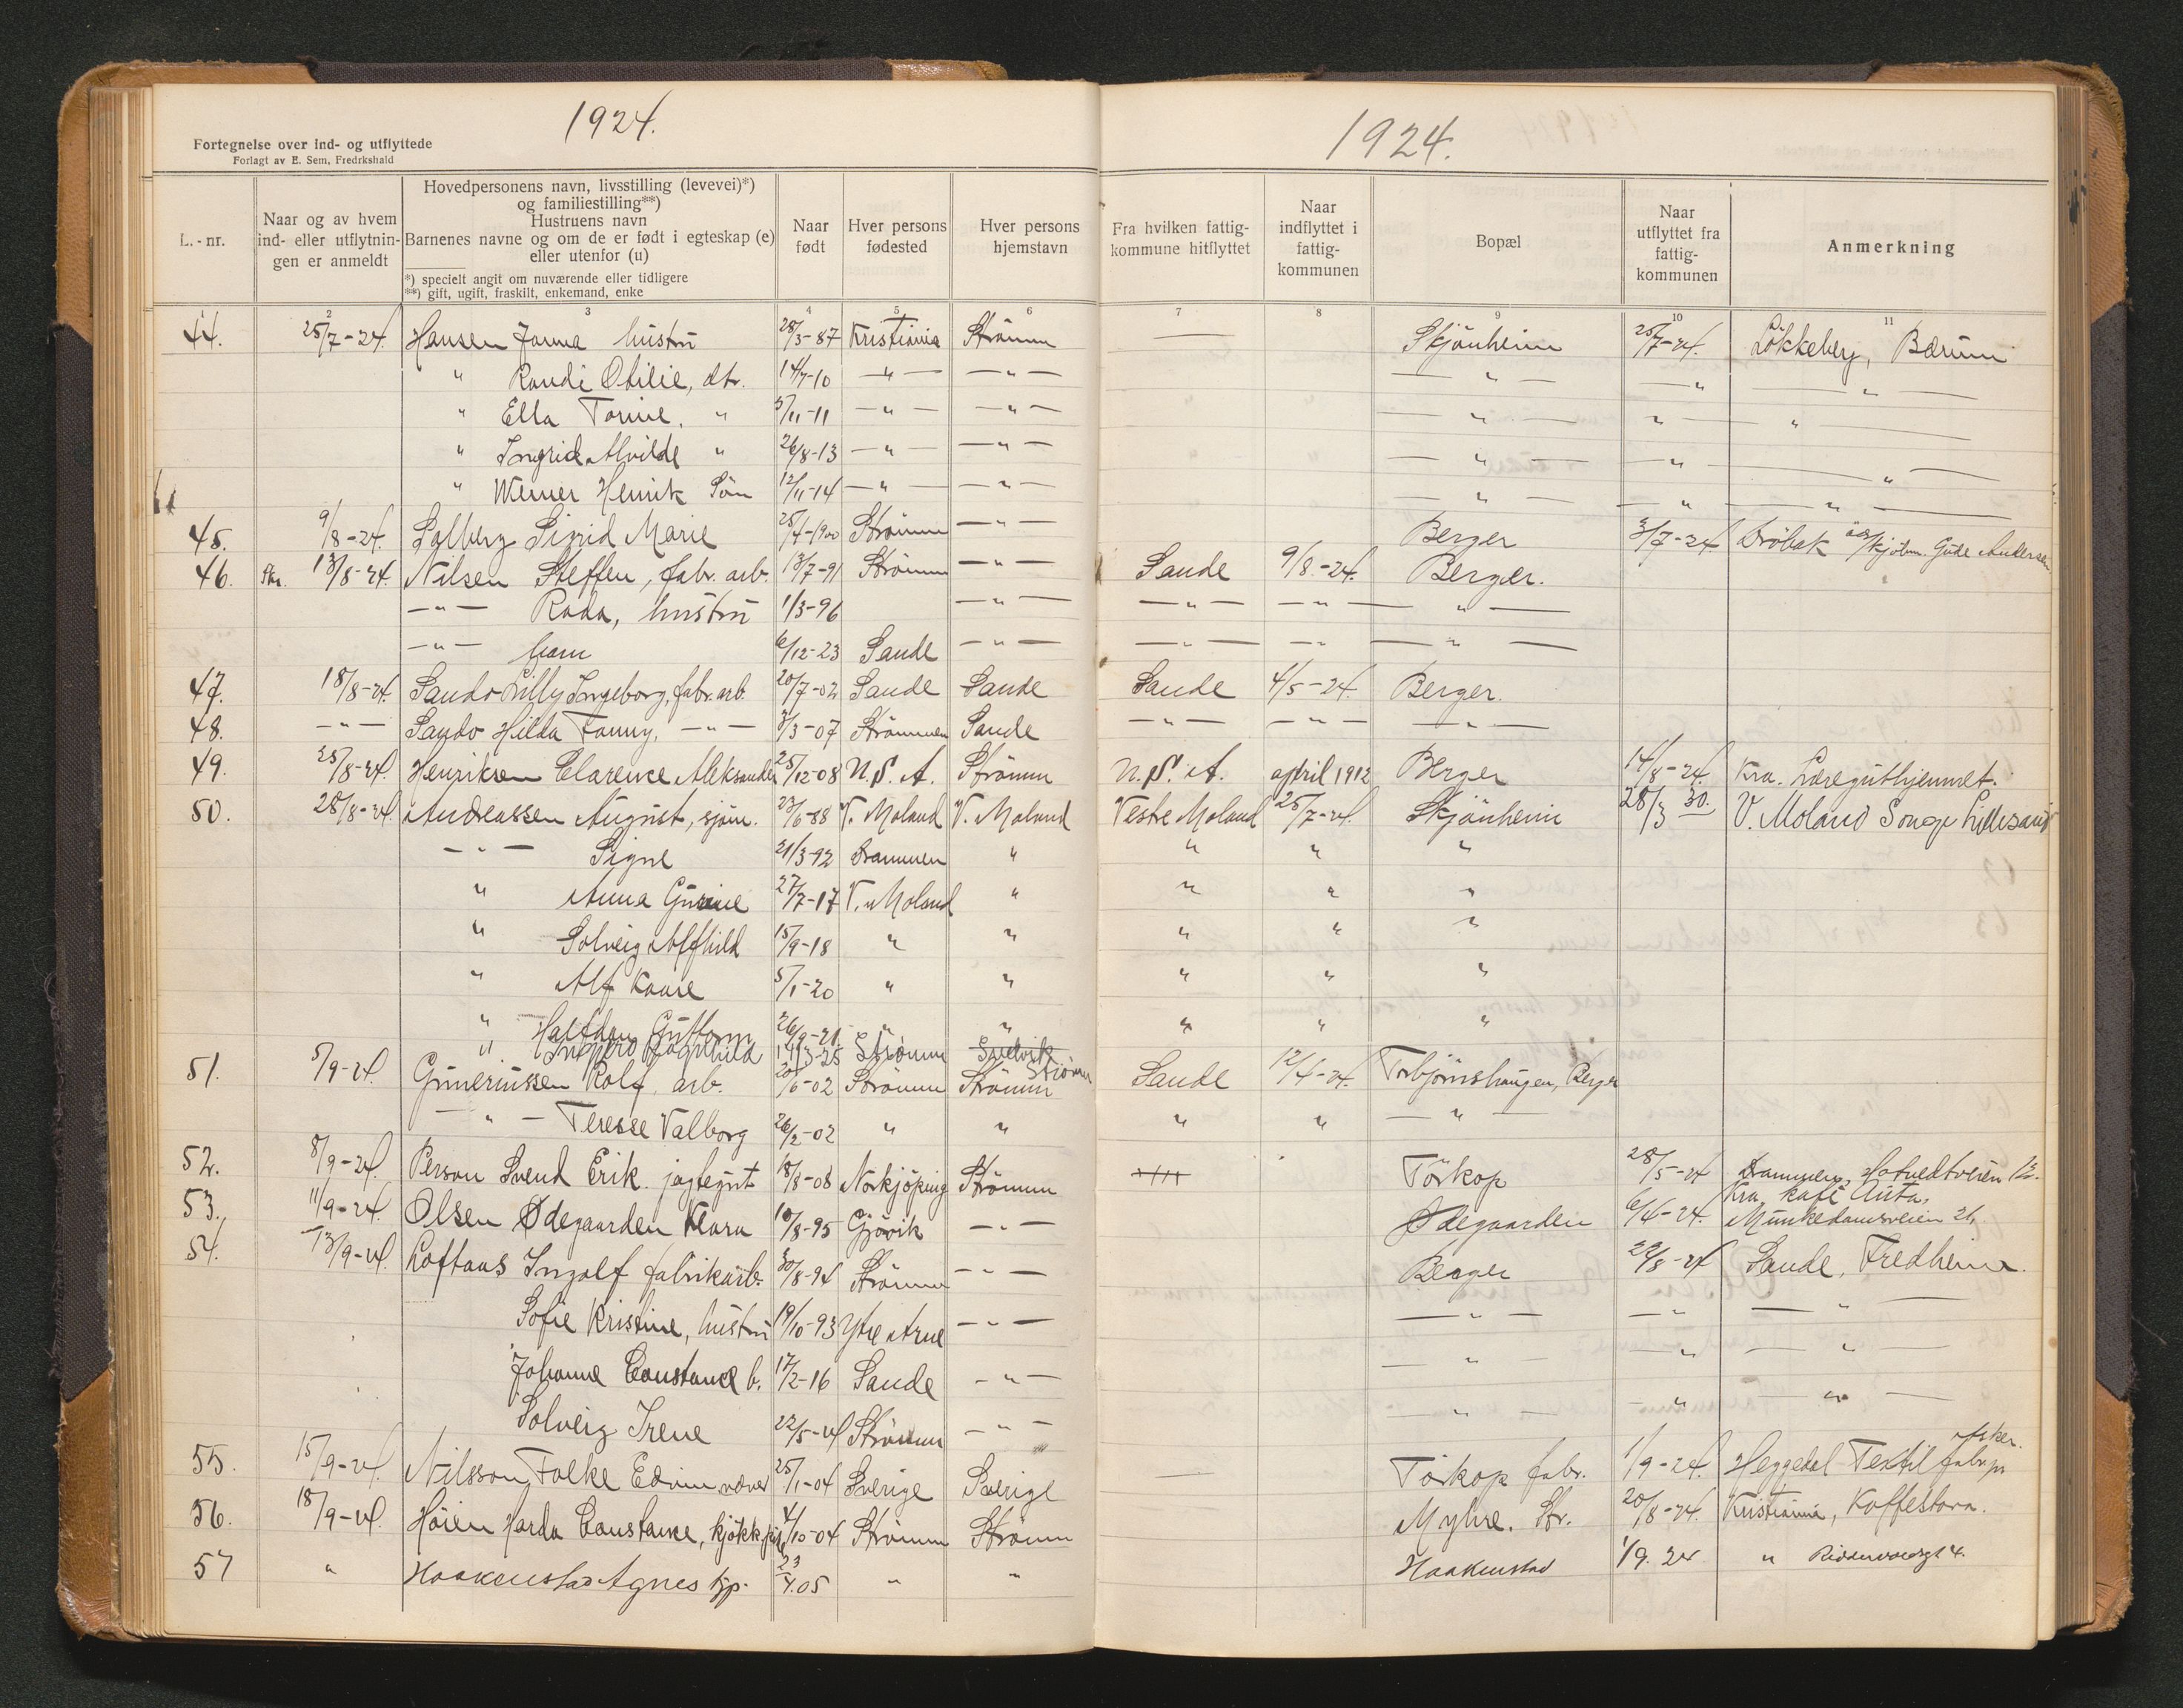 1924.
1924.
Fortegnelse over ind- og utflyttede
Forlagt av E. Sem, Fredrkshald
L.-nr. Naar og av hvem ind- eller utflytningen er anmeldt Hovedpersonens navn, livsstilling (levevei)*) og familiestilling**) Hustruens navn Barnenes navne og om de er født i egteskap (e) eller utenfor (u) *) specielt angit om nuværende eller tidligere **) gift, ugift, fraskilt, enkemand, enke Naar født Hver persons fødested Hver persons hjemstavn Fra hvilken fattig-kommune hitflyttet Naar indflyttet i fattig-kommunen Bopæl Naar utflyttet fra fattig-kommunen Anmerkning
2 3 4 5 6 7 8 9 10 11
44. 25/7-24. Hansen Janna hustru 28/3-87 Kristiania Strømm — Skjønheim 25/7-24. Løkkeberg, Bærum
" Randi Otilie, dtr. 14/7-10 —"— —"— —"— —"— —"—
" Ella Tomine, " 5/11-11 —"— —"— —"— "— "—
" Ingrid Alvilde " 26/8-13 —"— —"— —"— —"— —"—
" Werner Henrik Søn 12/11-14 —"— —"— —"— —"— —"—
45. 9/8-24. Solberg Sigrid Marie 25/7-1900 Strømm —"— Berger 3/7-24 Drøbak Gude Andersen
46. Str. 13/8-24. Nilsen Steffen, fabr. arb. 13/7-91 Strømm —"— Sande 9/8-24. Berger.
—"— Rada, hustru 1/3-96 —"— —"— —"— —"—
—"— barn 6/12-23 Sande —"— —"— —"— —"—
47. 18/8-24. Sando Lilly Ingeborg, fabr. arb. 20/7-02 Sande Sande Sande 4/5-24. Berger.
48. —"— Sando Hilda Fanny, —"— 3/3-07 Strømmen Sande —"— —"— —"—
49. 25/8-24. Henriksen Clarence Aleksander 25/12-08 U.S.A. Strømm U.S.A. april 1912 Berger 14/8-24. Kra. Læreguthjemmet.
50. 28/8-24. Andreassen August, sjøm. 23/6-88 V. Moland V. Moland Vestre Moland 25/7-24. Skjønheim 28/3 30. V. Moland Songe Lillesand
—"— Signe 21/3-92 Drammen " " " "
" Anna Gurine 27/7-17 V. Moland " " " "
" Solveig Alfhild 15/9-18 " " " " "
" Alf Kaare 5/1-20 " " " " "
" Halfdan Guttorm 26/9-21 " " " " "
" Ragnhild 14/3-25 Strømm Svelvik Strømm
51. 5/9-24. Gunerussen Rolf, arb. 20/6-02 Strømm Strømm Sande 12/4-24. Torbjørnshaugen, Berger
—"— Terese Valborg 26/2-02 " " " " —"—
52. 8/9-24. Person Svend Erik. jagtegut 18/8-08 Norkjøping Strømm Tørkop 28/5-24 Drammen, Hotvedtveien 12.
53. 11/9-24. Olsen Ødegaarden Klara 10/8-95 Gjøvik —"— Ødegaarden 6/4-24. Kra. kafé Aista, Munkedamsveien 26,
54. 13/9-24. Loftaas Ingolf fabrikarb. 30/8-94 Strømm —"— Berger 22/8-24 Sande, Fredheim.
Sofie Kristine, hustru 19/10-93 Ytre Arne —"— —"— —"— —"—
Johanne Constance b. 17/2-16 Sande —"— —"— —"— —"—
Solveig Irene 22/5-24 Strømm —"— —"— —"— —"—
55. 15/9-24. Nilsson Folke Edvin, væver 25/1-04 Sverige Sverige — Tørkop fabr. 1/9-24. Heggedal Textil fabr. Asker.
56. 18/9-24. Høien Harda Constance, kjøkkpike 4/10-04 Strømm Strømm Myhre. Str. 20/8-24. Kristiania, Kaffestova.
57 " Haakenstad Agnes tjp. 23/4.05 " " Haakenstad 1/9.24 " Riddervoldsgt 4.